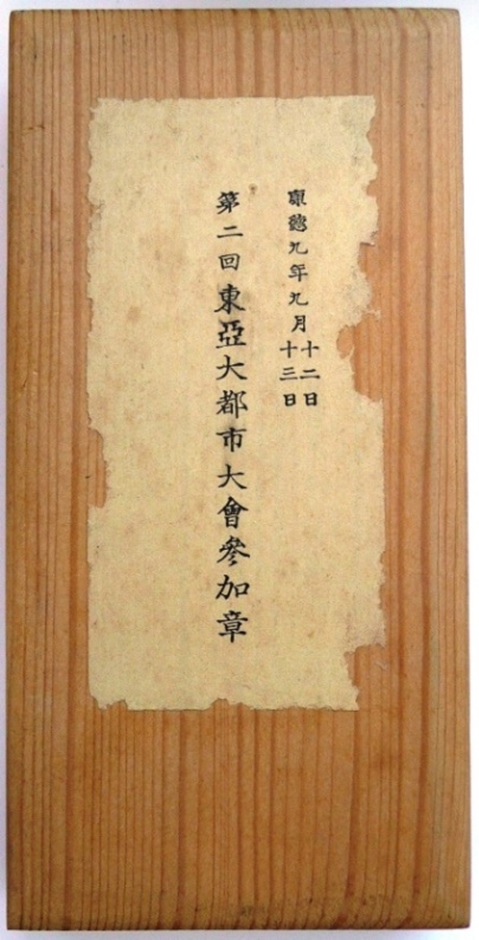 康德九年九月十二日
十三日
第二回東亞大都市大會參加章